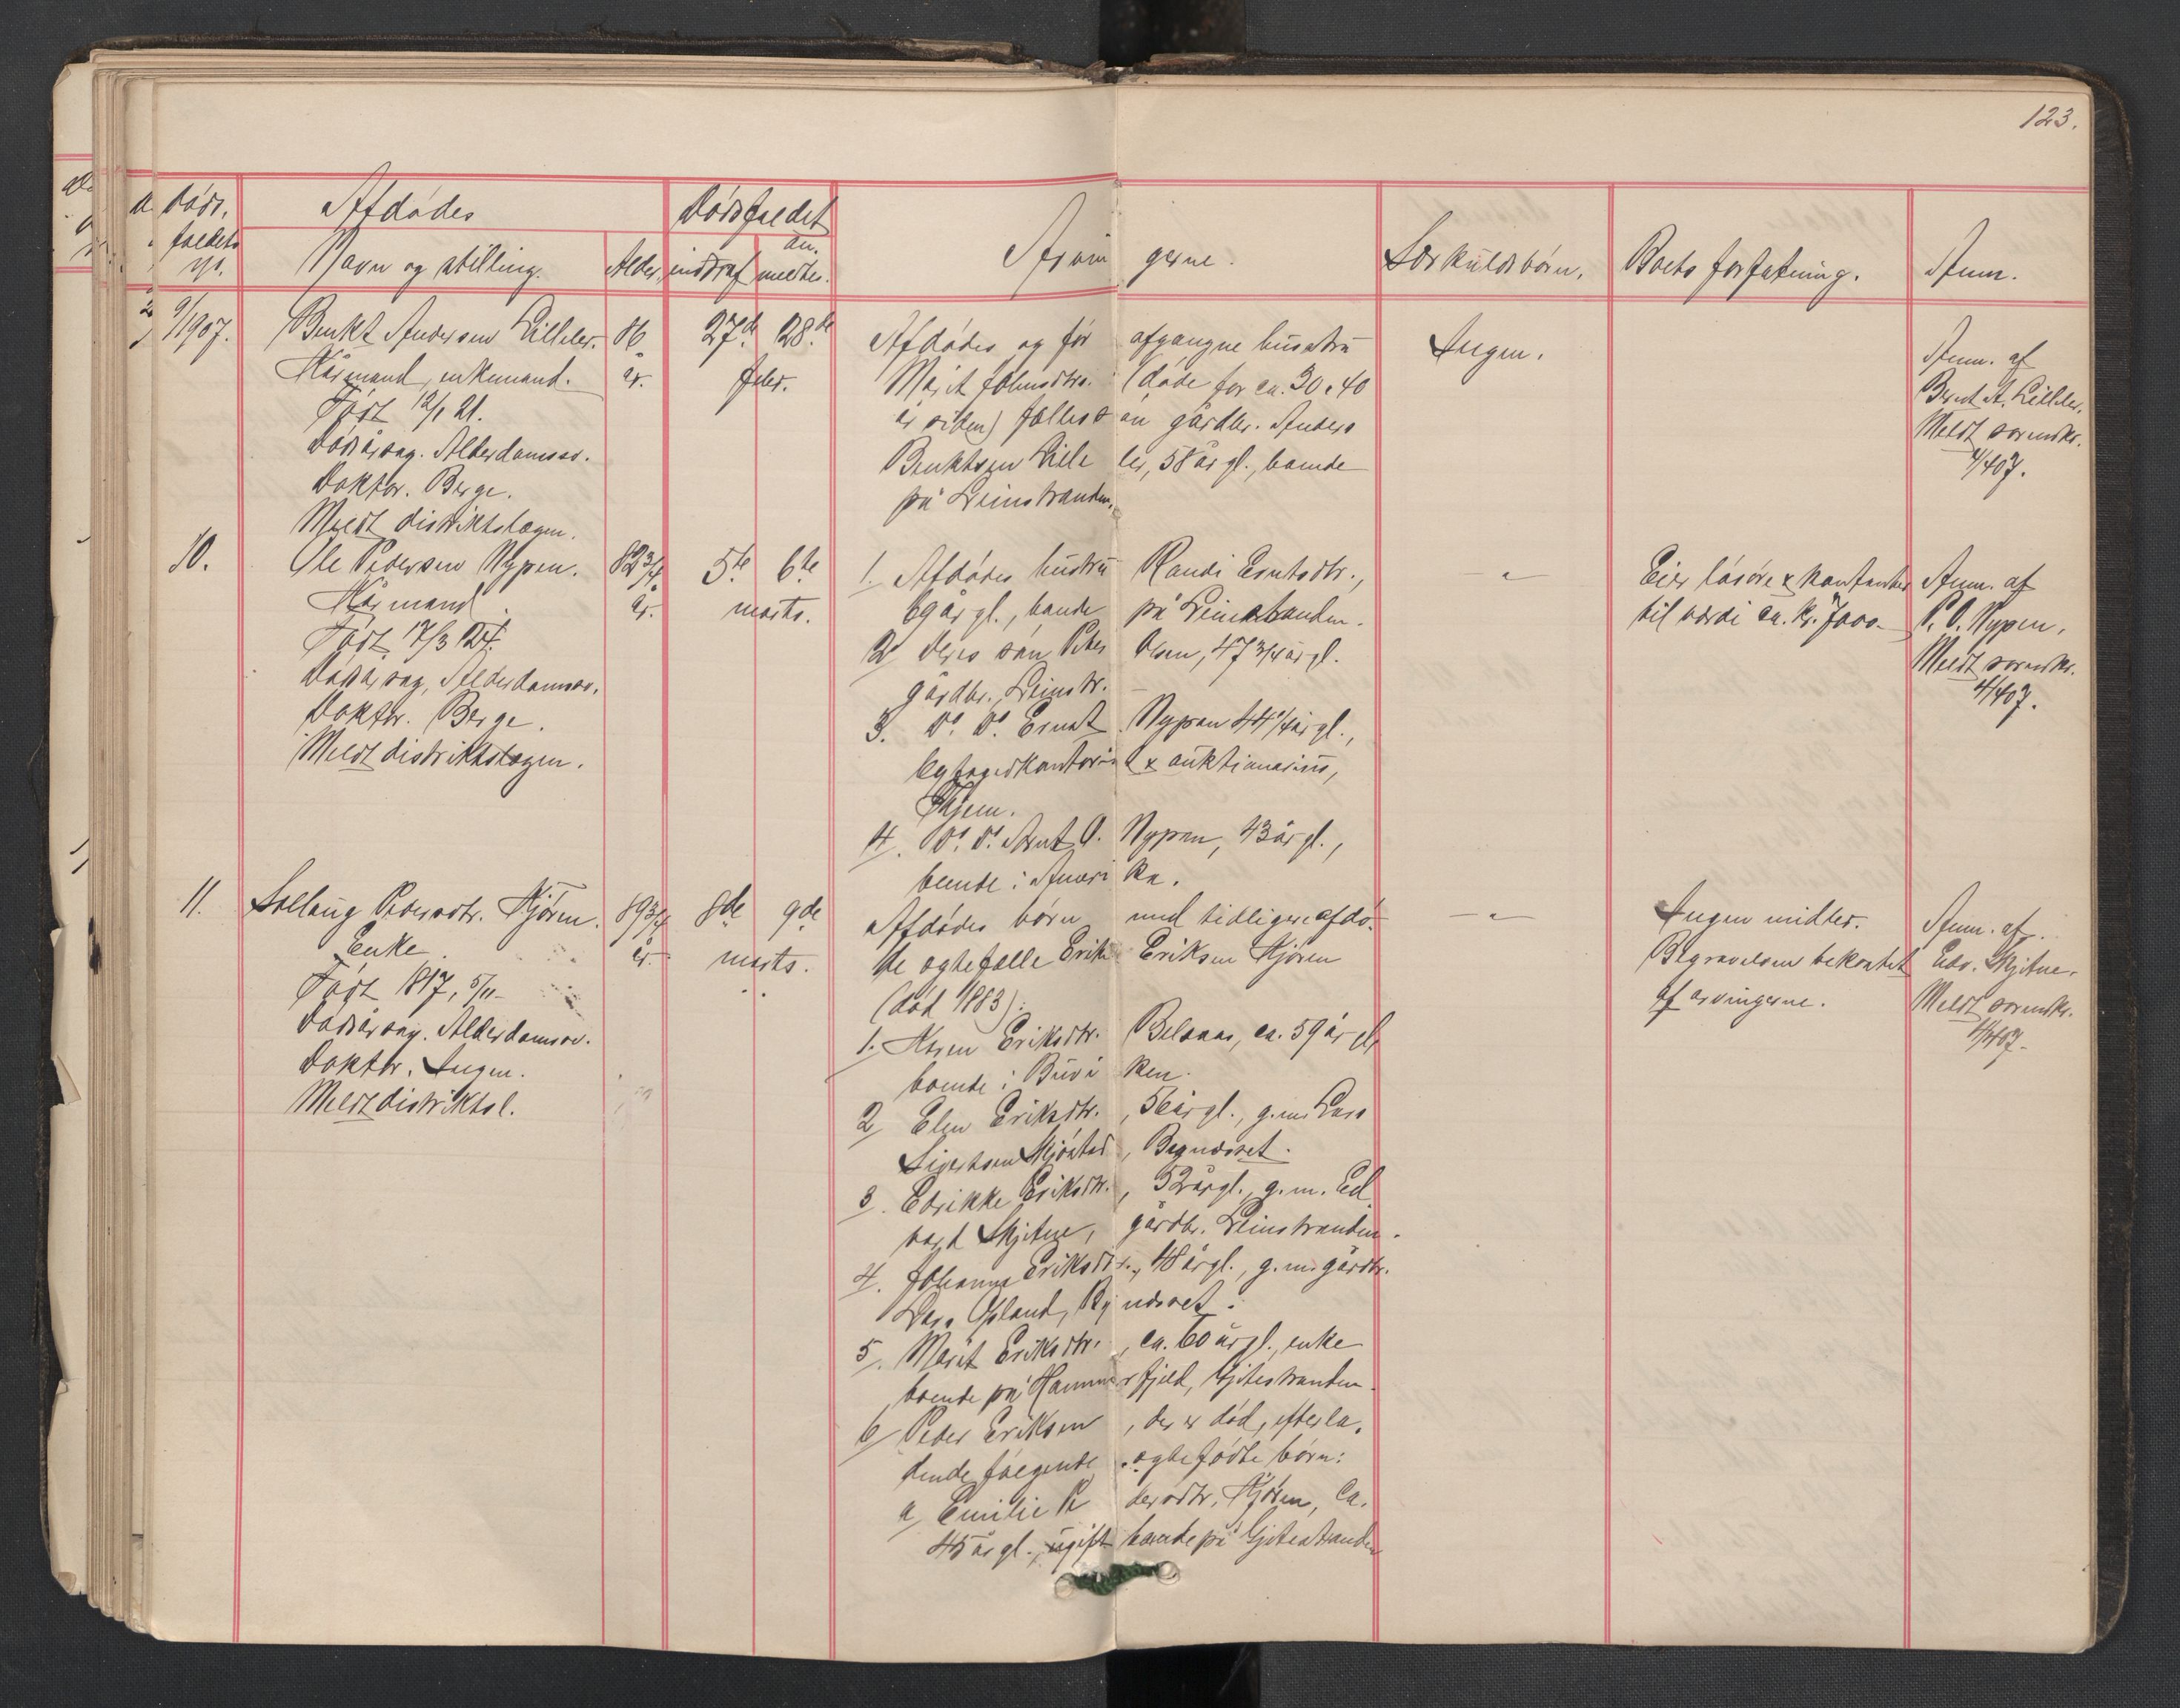 123.
Døds-
faldets
No.
Afdødes
Navn og stilling.
Alder.
Dødsfaldet
indtraf
an-
meldtes.
Arvin gerne.
Særkuldsbørn.
Boets forfatning.
Anm.
9/1907.
Benkt Andersen Lilleler.
Kårmand, enkemand.
Født 12/1 21.
Dødsårsag. Alderdomssv.
Doktor. Berge.
Meldt distriktslægen.
86
år.
27de 28de
febr.
Afdødes og før afgangne hustru
Marit Johnsdtrs. (døde for ca. 30 à 40
år siden) fælles søn gårdbr. Anders
Benktsen Lille ler, 58 år gl., boende
på Leinstranden.
Ingen.
Anm. af
Bernt A. Lilleler.
Meldt sorenskr.
4/4 07.
10.
Ole Pedersen Nypen.
Kårmand.
Født 17/3 24.
Dødsårsag, Alderdomssv.
Doktor. Berge.
Meldt distriktslægen.
82 3/4
år.
5te 6te
marts.
1. Afdødes hustru Randi Erntsdtr.,
69 år gl., boende på Leinstranden.
2. deres søn Peder Olsen, 47 3/4 år gl.
gårdbr., Leinstr.
3. Do. Do. Ernst Nypan 44 1/4 år gl.,
byfogedkontorist & auktionarius,
Thjem.
4. Do. Do. Arnt O. Nypan, 43 år gl.,
boende i Ameri ka.
— " —
Eier løsøre & kontanter
til værdi ca. kr. 7000.-
Anm. af
P. O. Nypen.
Meldt sorenskr.
4/4 07.
11.
Solloug Pedersdtr. Kjøren.
Enke
Født 1817, 5/11-
Dødsårsag. Alderdomssv.
Doktor. Ingen.
Meldt distriktsl.
89 3/4
år.
8de 9de
marts.
Afdødes børn med tidligere afdø-
de ægtefælle Erik Eriksen Kjøren
(død 1883):
1. Karen Eriksdtr. Belsaas, ca. 59 år gl.
boende i Buvi ken.
2. Elen Eriksdtr., 56 år gl., g.m. Lars
Sivertsen Skjøstad, Bynæsset.
3. Edrikke Eriksdtr., 52 år gl., g.m. Ed
vard Skjetne, gårdbr. Leinstranden.
4. Johanna Eriksdtr., 48 år gl., g.m. gårdbr.
Lars Opland, By næsset.
5. Marit Eriksdtr., ca. 60 år gl., enke
boende på Hammer fjeld, Gjetestranden.
6. Peder Eriksen, der er død, efterla-
dende følgende ægtefødte børn:
a, Emilie Pe dersdtr. Kjøren, ca.
45 år gl., ugift boende på Gjetestranden
— " —
Ingen midler.
Begravelsen bekostet
af arvingerne.
Anm. af
Edv. Skjetne.
Meldt sorenskr.
4/4 07.